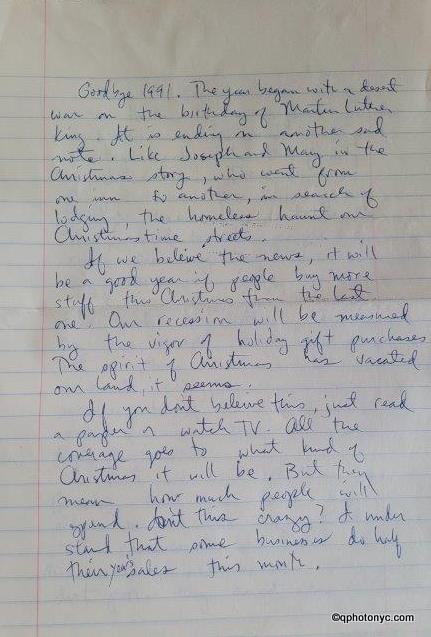 Goodbye 1991. The year began with a desert
war on the birthday of Martin Luther
King. It is ending on another sad
note. Like Joseph and Mary in the
Christmas story, who went from
one inn to another, in search of
lodging, the homeless haunt our
Christmastime streets.
If we beleive the news, it will
be a good year if people buy more
stuff this Christmas than the last
one. Our recession will be measured
by the vigor of holiday gift purchases
The spirit of Christmas has vacated
our land, it seems.
If you dont beleive this, just read
a paper or watch TV. All the
coverage goes to what kind of
Christmas it will be. But they
mean how much people will
spend. Isnt this crazy? I under
stand that some businesses do half
their year's sales this month.
©qphotonyc.com